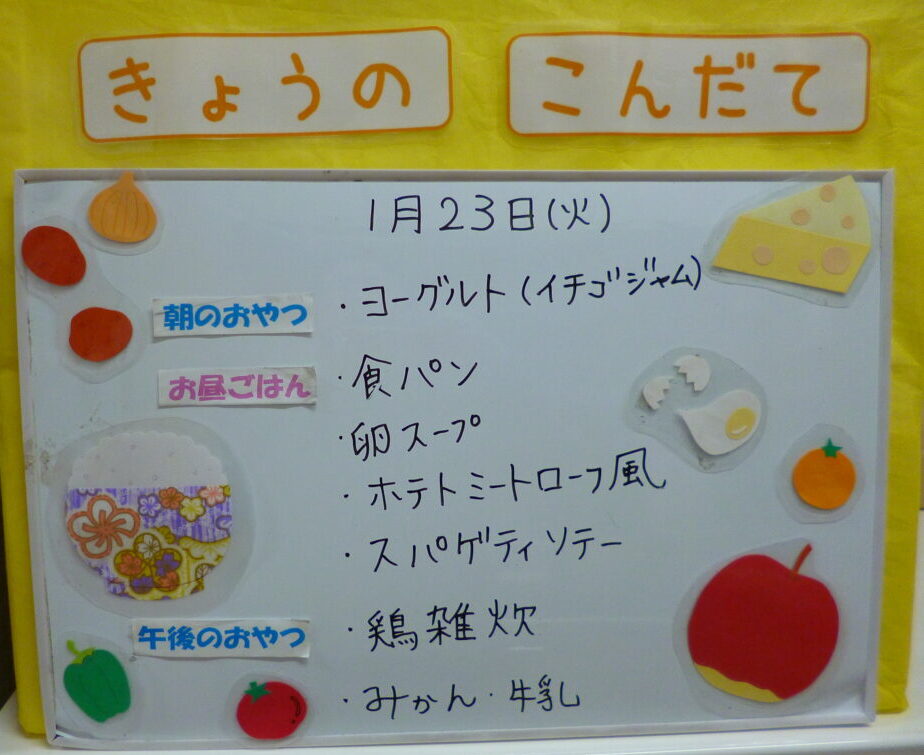 きょうの こんだて
1月23日(火)
朝のおやつ ・ヨーグルト(イチゴジャム)
お昼ごはん ・食パン
・卵スープ
・ホテトミートローフ風
・スパゲティソテー
午後のおやつ ・鶏雑炊
・みかん・牛乳